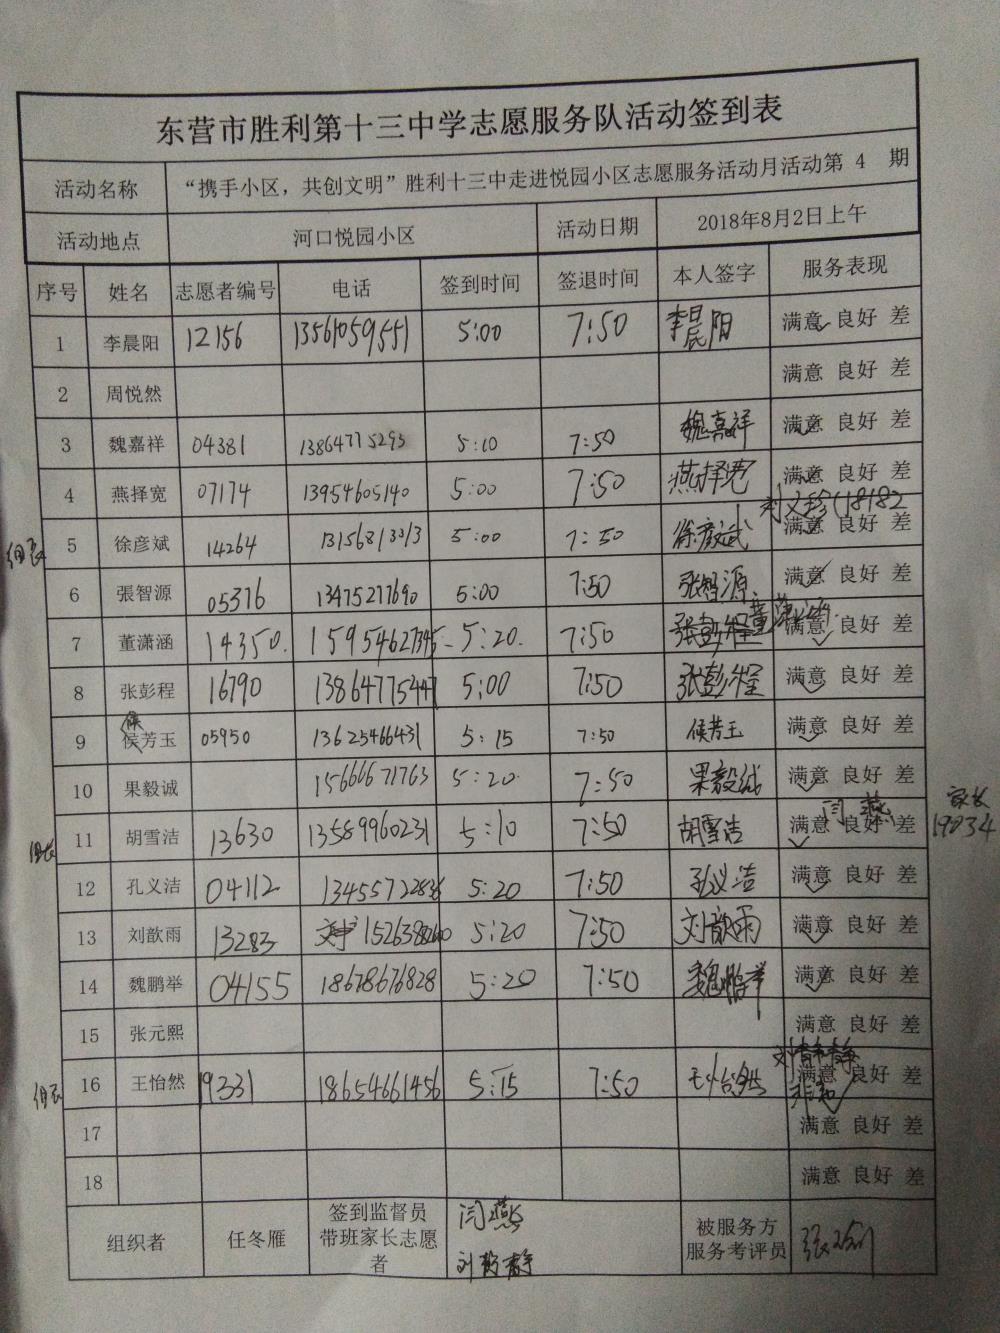 东营市胜利第十三中学志愿服务队活动签到表
活动名称 “携手小区，共创文明”胜利十三中走进悦园小区志愿服务活动月活动第 4 期
活动地点 河口悦园小区 活动日期 2018年8月2日上午
序号 姓名 志愿者编号 电话 签到时间 签退时间 本人签字 服务表现
1 李晨阳 12156 13561059551 5:00 7:50 李晨阳 满意 良好 差
2 周悦然 满意 良好 差
3 魏嘉祥 04381 13864775293 5:10 7:50 魏嘉祥 满意 良好 差
4 燕择宽 07174 13954605140 5:00 7:50 燕择宽 满意 良好 差
(18182
5 徐彦斌 14264 13156813313 5:00 7:50 徐彦斌 满意 良好 差
6 張智源 05376 13475277690 5:00 7:50 张智源 满意 良好 差
董潇涵
7 董潇涵 14350. 15954627345 5:20. 7:50 张彭程 满意 良好 差
8 张彭程 16790 13864775447 5:00 7:50 张彭程 满意 良好 差
侯
9 侯芳玉 05950 13625466431 5:15 7:50 侯芳玉 满意 良好 差
10 果毅诚 15666671763 5:20 7:50 果毅诚 满意 良好 差
闫燕 家长
组长 11 胡雪洁 13630 13589960231 5:10 7:50 胡雪洁 满意 良好 差 19034
12 孔义洁 04112 13455722836 5:20 7:50 孔义洁 满意 良好 差
13 刘歆雨 13283 5:20 7:50 刘歆雨 满意 良好 差
14 魏鹏举 04155 18678676828 5:20 7:50 魏鹏举 满意 良好 差
15 张元熙 满意 良好 差
16 王怡然 19331 18654661456 5:15 7:50 王怡然 满意 良好 差
17 满意 良好 差
18 满意 良好 差
组织者 任冬雁 签到监督员 闫燕 被服务方
带班家长志愿 服务考评员
者